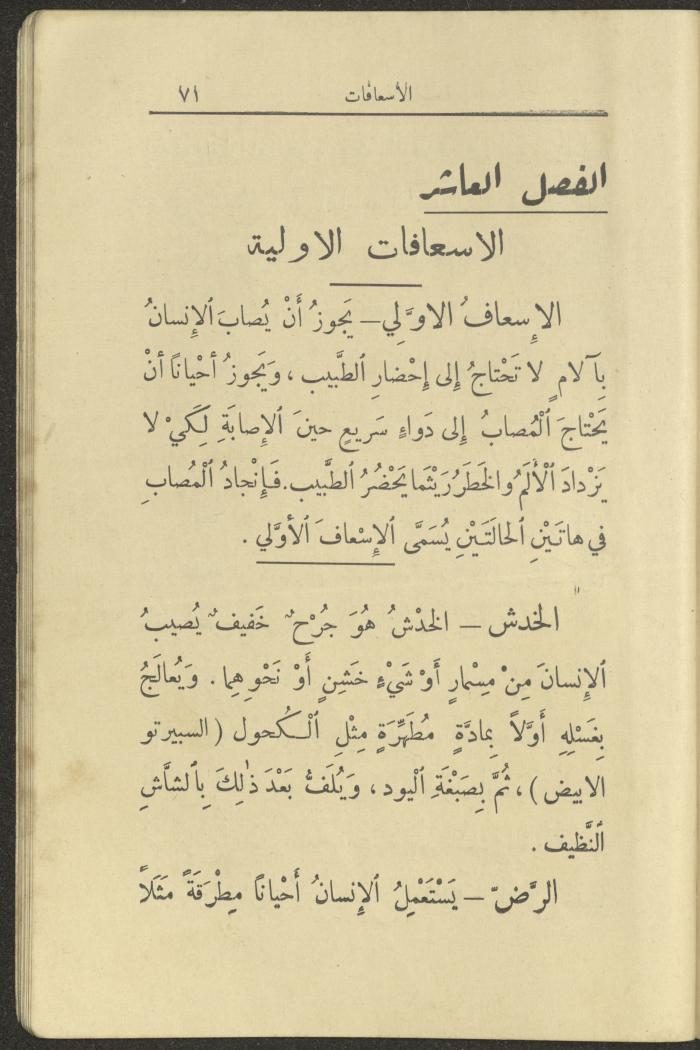 الأسعافات ٧١
الفصل العاشر
الاسعافات الاولية
الإسعافُ الاوَّلي – يَجوزُ أَنْ يُصابَ ٱلإِنسانُ
بِآلامٍ لا تَحْتاجُ إِلى إِحْضارِ ٱلطَّبيب ، وَيَجوزُ أَحْيانًا أنْ
يَحْتاجَ ٱلْمُصابُ إِلى دَواءٍ سَريعٍ حينَ ٱلإِصابَةِ لِكَيْ لا
يَزْدادَ ٱلْأَلَمُ والخَطَرُ رَيْثَما يَحْضُرُ ٱلطَّبيب. فَإِنْجادُ ٱلْمُصابِ
في هاتَيْنِ ٱلحالَتَيْنِ يُسَمَّى ٱلإِسْعافَ ٱلأَوَّلي .
الخدش – الخَدْشُ هُوَ جُرْحٌ خَفيفٌ يُصيبُ
ٱلإِنسانَ مِنْ مِسْمارٍ أَوْ شَيْءٍ خَشِنٍ أَوْ نَحْوِهِما . وَيُعالَجُ
بِغَسْلِهِ أَوَّلاً بِمادَّةٍ مُطَهِّرَةٍ مِثْلِ ٱلْكُحول ( السبيرتو
الابيض ) ، ثُمَّ بِصَبْغَةِ ٱلْيود ، وَيُلَفُّ بَعْدَ ذٰلِكَ بِٱلشَّاشِ
ٱلنَّظيف .
الرَّضّ – يَسْتَعْمِلُ ٱلإِنسانُ أَحْيانًا مِطْرَقَةً مَثَلاً